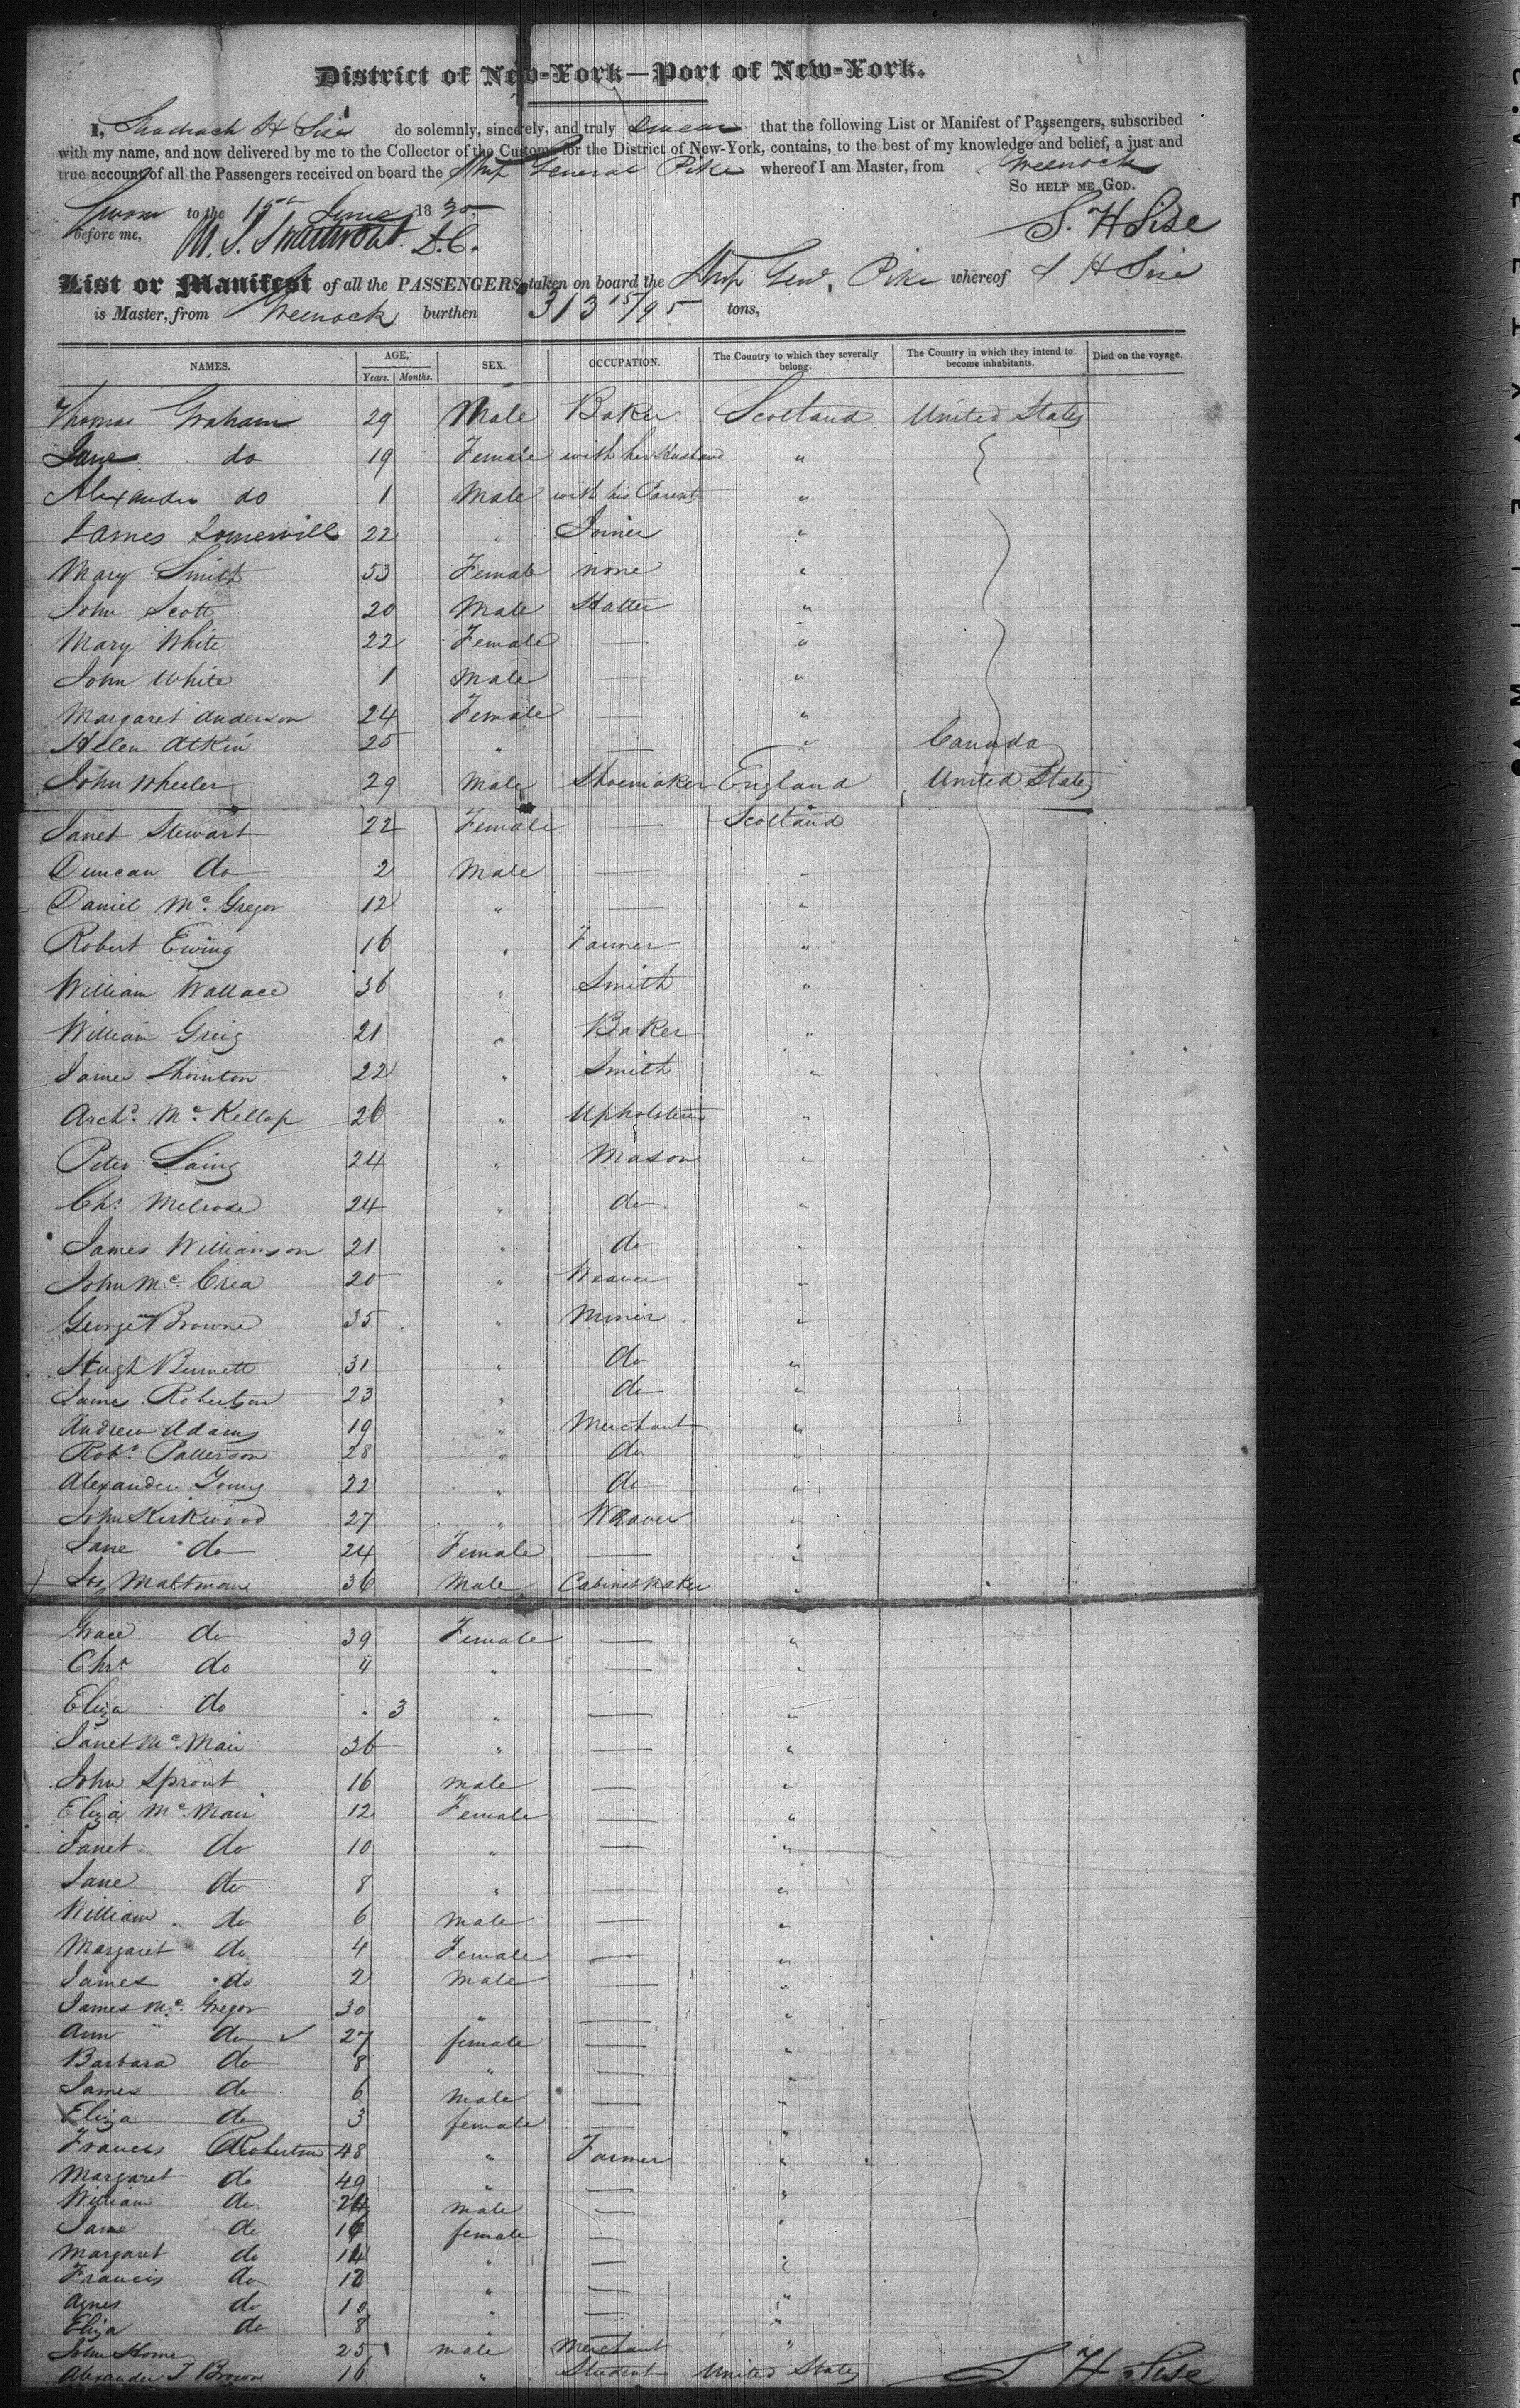 District of New-York—Port of New-York.
I, Shadrach H Sise do solemnly, sincerely, and truly swear that the following List or Manifest of Passengers, subscribed
with my name, and now delivered by me to the Collector of the Customs for the District of New-York, contains, to the best of my knowledge and belief, a just and
true account of all the Passengers received on board the Ship General Pike whereof I am Master, from Greenock
So HELP ME GOD.
Sworn to the 15th June 1830
before me, S. H Sise
D.C.
List or Manifest of all the PASSENGERS taken on board the Ship Genl. Pike whereof S H Sise
is Master, from Greenock burthen 313 15/95 tons,
NAMES. AGE, Years. Months. SEX. OCCUPATION. The Country to which they severally belong. The Country in which they intend to become inhabitants. Died on the voyage.
Thomas Graham 29 Male Baker Scotland United States
Jane do 19 Female with her Husband "
Alexander do 1 Male with his Parents "
James Somervill 22 " Joiner "
Mary Smith 53 Female none "
John Scott 20 Male Hatter "
Mary White 22 Female — "
John White 1 Male — "
Margaret Anderson 24 Female — "
Helen Atkin 25 " — " Canada
John Wheeler 29 Male Shoemaker England United States
Janet Stewart 22 Female — Scotland
Duncan do 2 Male — "
Daniel Mc. Gregor 12 " — "
Robert Ewing 16 " Farmer "
William Wallace 36 " Smith "
William Greig 21 " Baker "
James Thornton 22 " Smith "
Archd. Mc. Kellop 26 " Upholsterer "
Peter Laing 24 " Mason "
Chs. Melrose 24 " do "
James Williamson 21 " do "
John Mc. Crea 20 " Weaver "
George Browne 35 " Miner "
Hugh Burnett 31 " do "
James Robertson 23 " do "
Andrew Adams 19 " Merchant "
Robt. Patterson 28 " do "
Alexander Young 22 " do "
John Kirkwood 27 " Weaver "
Jane do 24 Female — "
Maltman 36 Male Cabinet Maker "
Grace do 39 Female — "
Chrs. do 4 " — "
Eliza do 3 " — "
Janet Mc. Mair 36 " — "
John Sprout 16 male — "
Eliza Mc. Mair 12 Female — "
Janet do 10 " — "
Jane do 8 " — "
William do 6 male — "
Margaret do 4 Female — "
James do 2 Male — "
James Mc. Gregor 30 " — "
Ann do ✓ 27 female — "
Barbara do 8 " — "
James do 6 Male — "
Eliza do 3 female — "
Francis Robertson 48 " Farmer "
Margaret do 49 " — "
William do male — "
Jane do female — "
Margaret do 14 " — "
Francis do 12 " — "
Agnes do 10 " — "
Eliza do 8 " — "
John Horne 25 male Merchant "
Alexander T Brown 16 " Student United States
S. H Sise